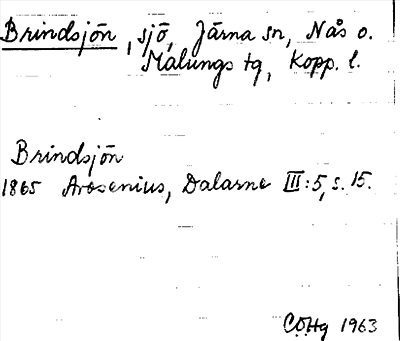 Brindsjön, sjö, Järna sn, Nås o.
Malungs tg, Kopp. l.
Brindsjön
1865 Arosenius, Dalarne III:5, s. 15.
C.O.Hg 1963